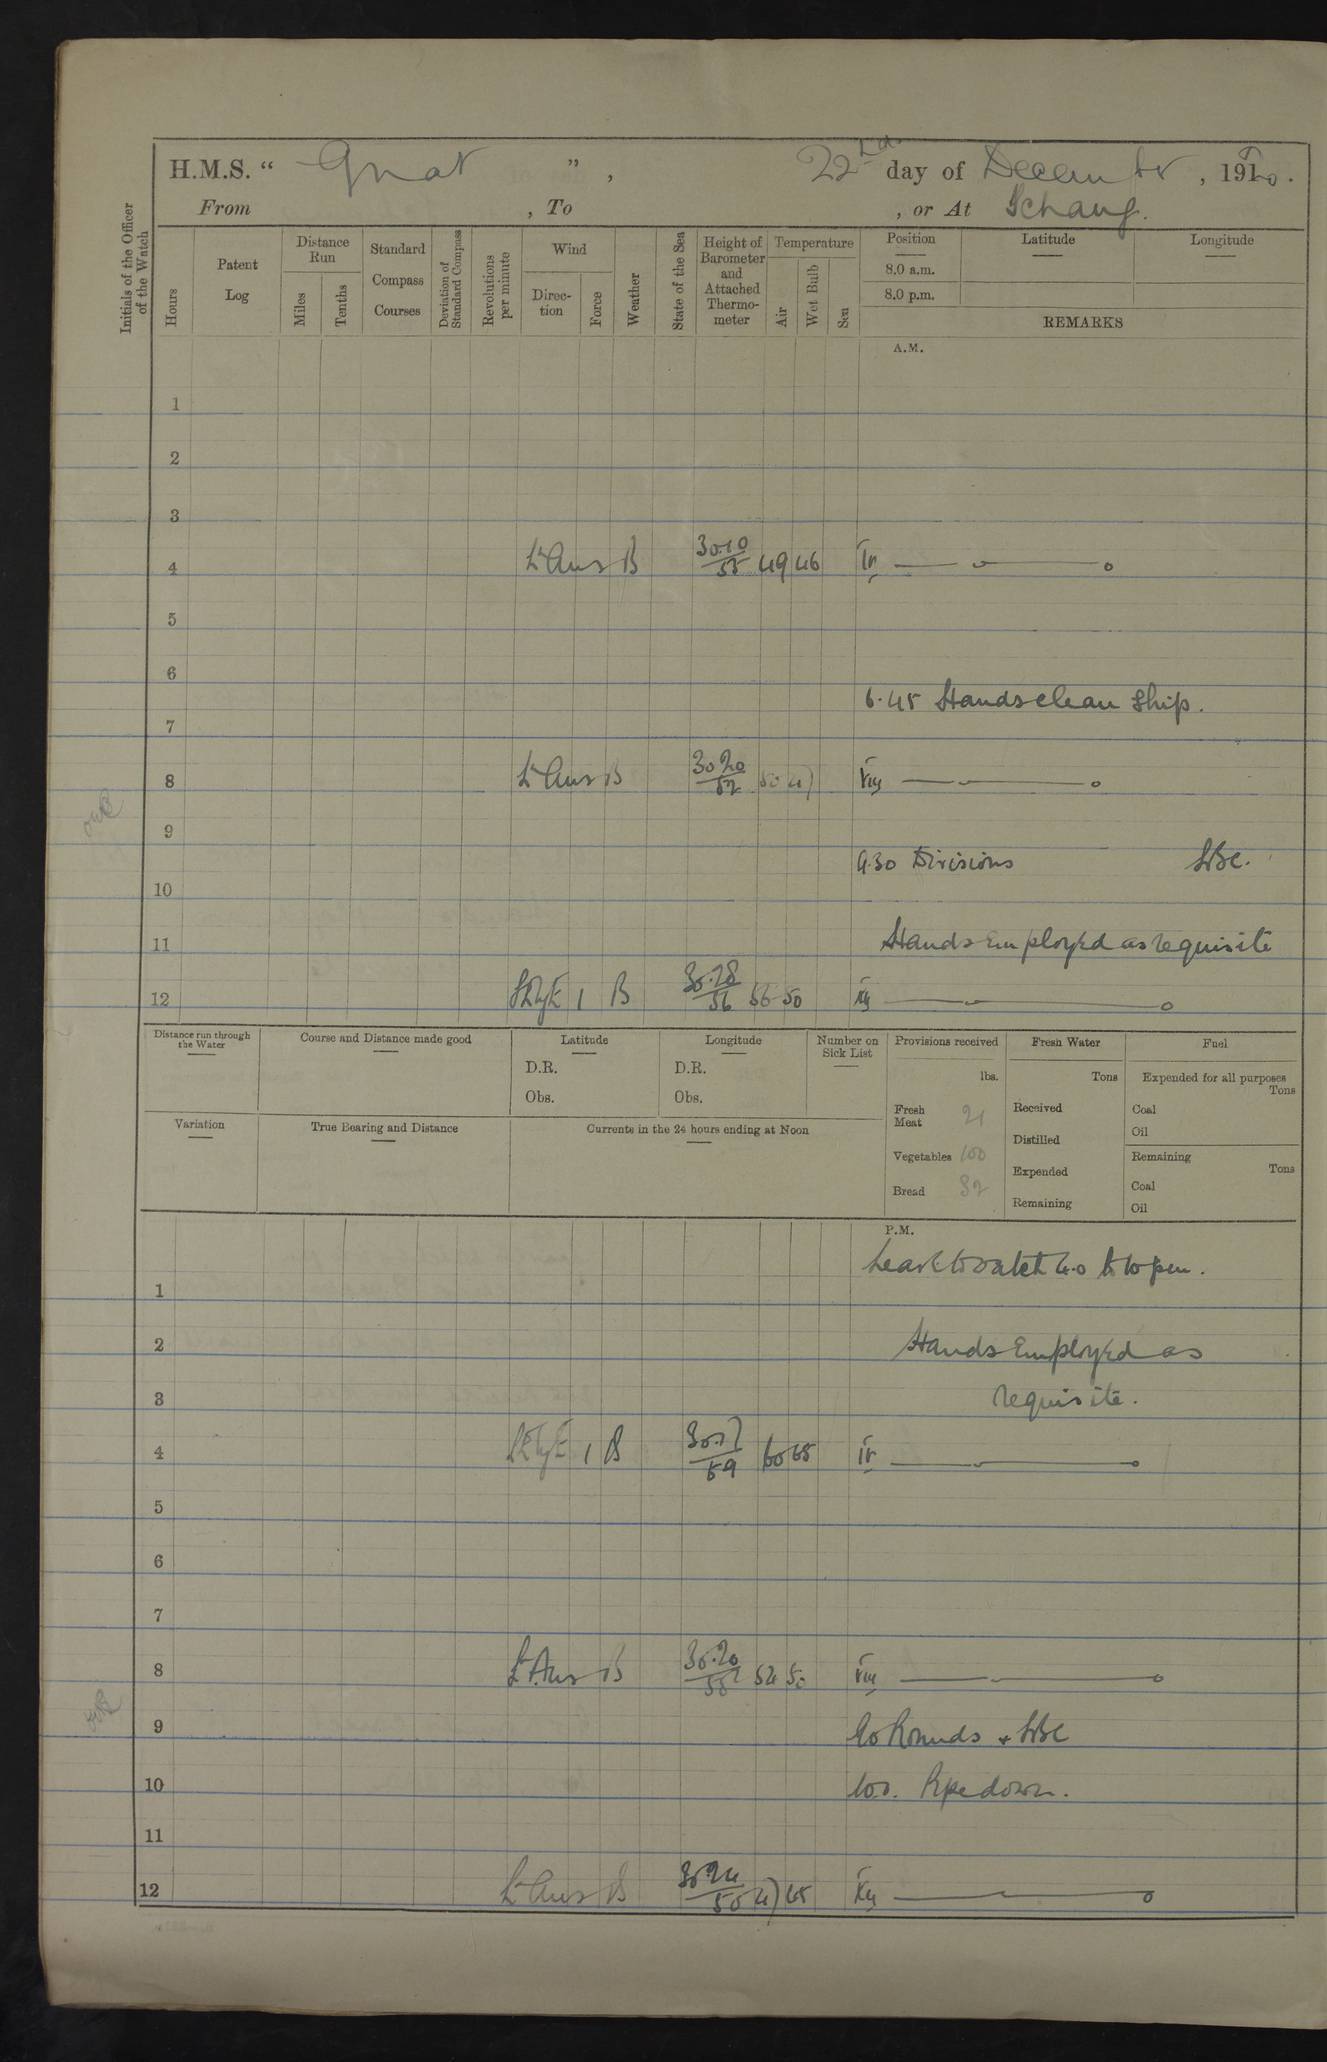 H.M.S. “ Gnat ”, 22nd day of December, 1920.
From , To , or At Ichang.
Initials of the Officer of the Watch
Hours
Patent Log
Distance Run
Miles
Tenths
Standard Compass Courses
Deviation of Standard Compass
Revolutions per minute
Wind
Direction
Force
Weather
State of the Sea
Height of Barometer and Attached Thermometer
Temperature
Air
Wet Bulb
Sea
Position
8.0 a.m.
8.0 p.m.
Latitude
Longitude
REMARKS
A.M.
1
2
3
4 Lt Airs B 30.10/55 49 46 IV
5
6
6.45 Hands clean Ship.
7
8 Lt Airs B 30.20/52 50 47 VIII
9
9.30 Divisions
10
11 Hands Employed as requisite
12 1 B 30.28/56 56 50 XII
Distance run through the Water
Course and Distance made good
Latitude
D.R.
Obs.
Longitude
D.R.
Obs.
Number on Sick List
Provisions received
lbs.
Fresh Meat 21
Vegetables 100
Bread 32
Fresh Water
Tons
Received
Distilled
Expended
Remaining
Fuel
Expended for all purposes
Tons
Coal
Oil
Remaining
Tons
Coal
Oil
Variation
True Bearing and Distance
Currents in the 24 hours ending at Noon
P.M.
Leave to watch 4.0 to 10 pm.
1
2 Hands Employed as
3 requisite.
4 1 B 30.17/59 60 55 IV
5
6
7
8 Lt Airs B 30.20/55 54 50 VIII
9 9.0 Rounds +
10 10.0. Pipe down.
11
12 Lt Airs B 30.24/50 47 45 XII